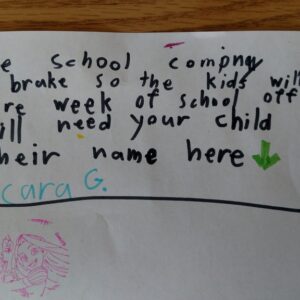 e school compny
brake so the kids will
re week of school off
ill need your child
heir name here
cara G.